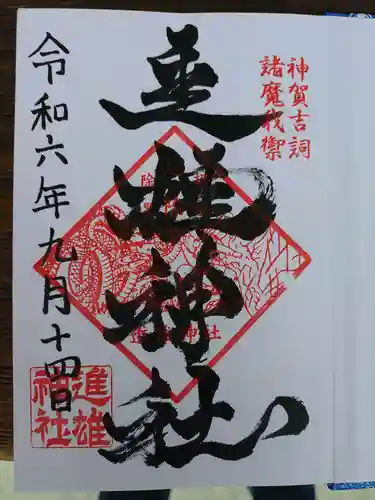 神賀吉詞
諸魔我禦
進雄神社
進雄神社
令和六年九月十四日
進雄
神社